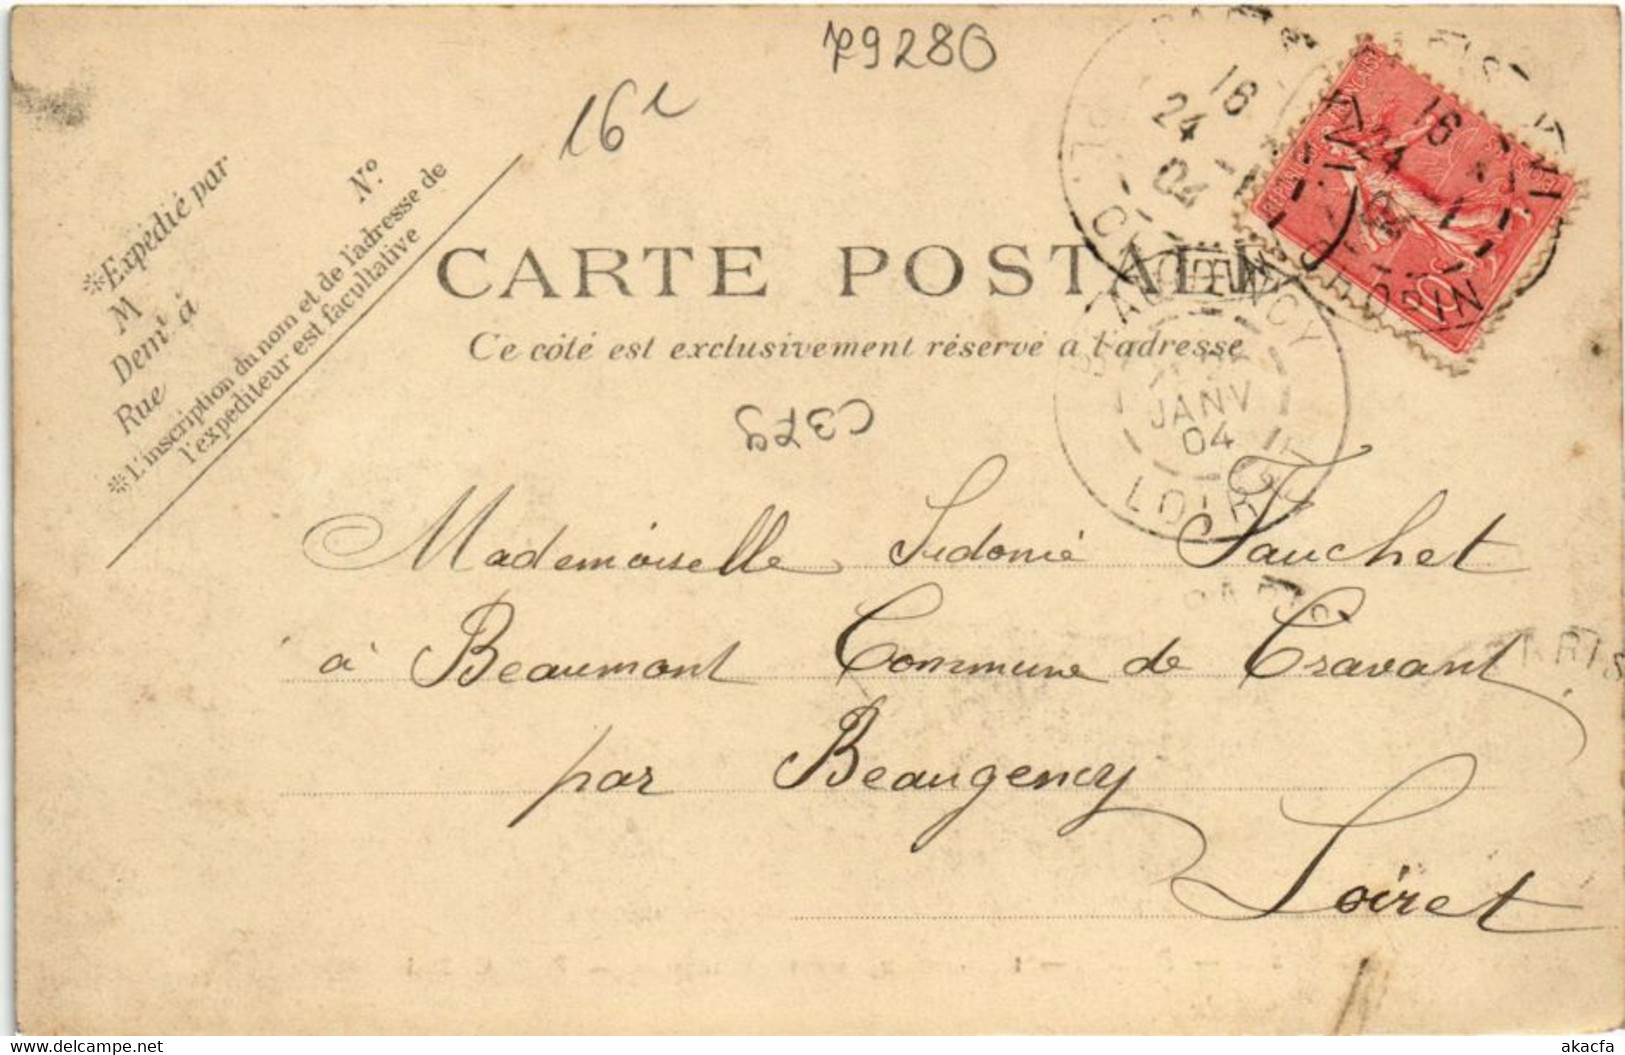 79280
16 L
*Expédié par
M
Demt à
Rue
No
*L'inscription du nom et de l'adresse de
l'expéditeur est facultative
CARTE POSTALE
Ce côté est exclusivement réservé à l'adresse
C379
16
24
04
16
24
04
CHOPIN
BEAUGENCY
JANV
04
LOIRET
Mademoiselle Sidonie Fauchet
à Beaumont Commune de Cravant
par Beaugency
Loiret
PARIS
PARIS
akacfa